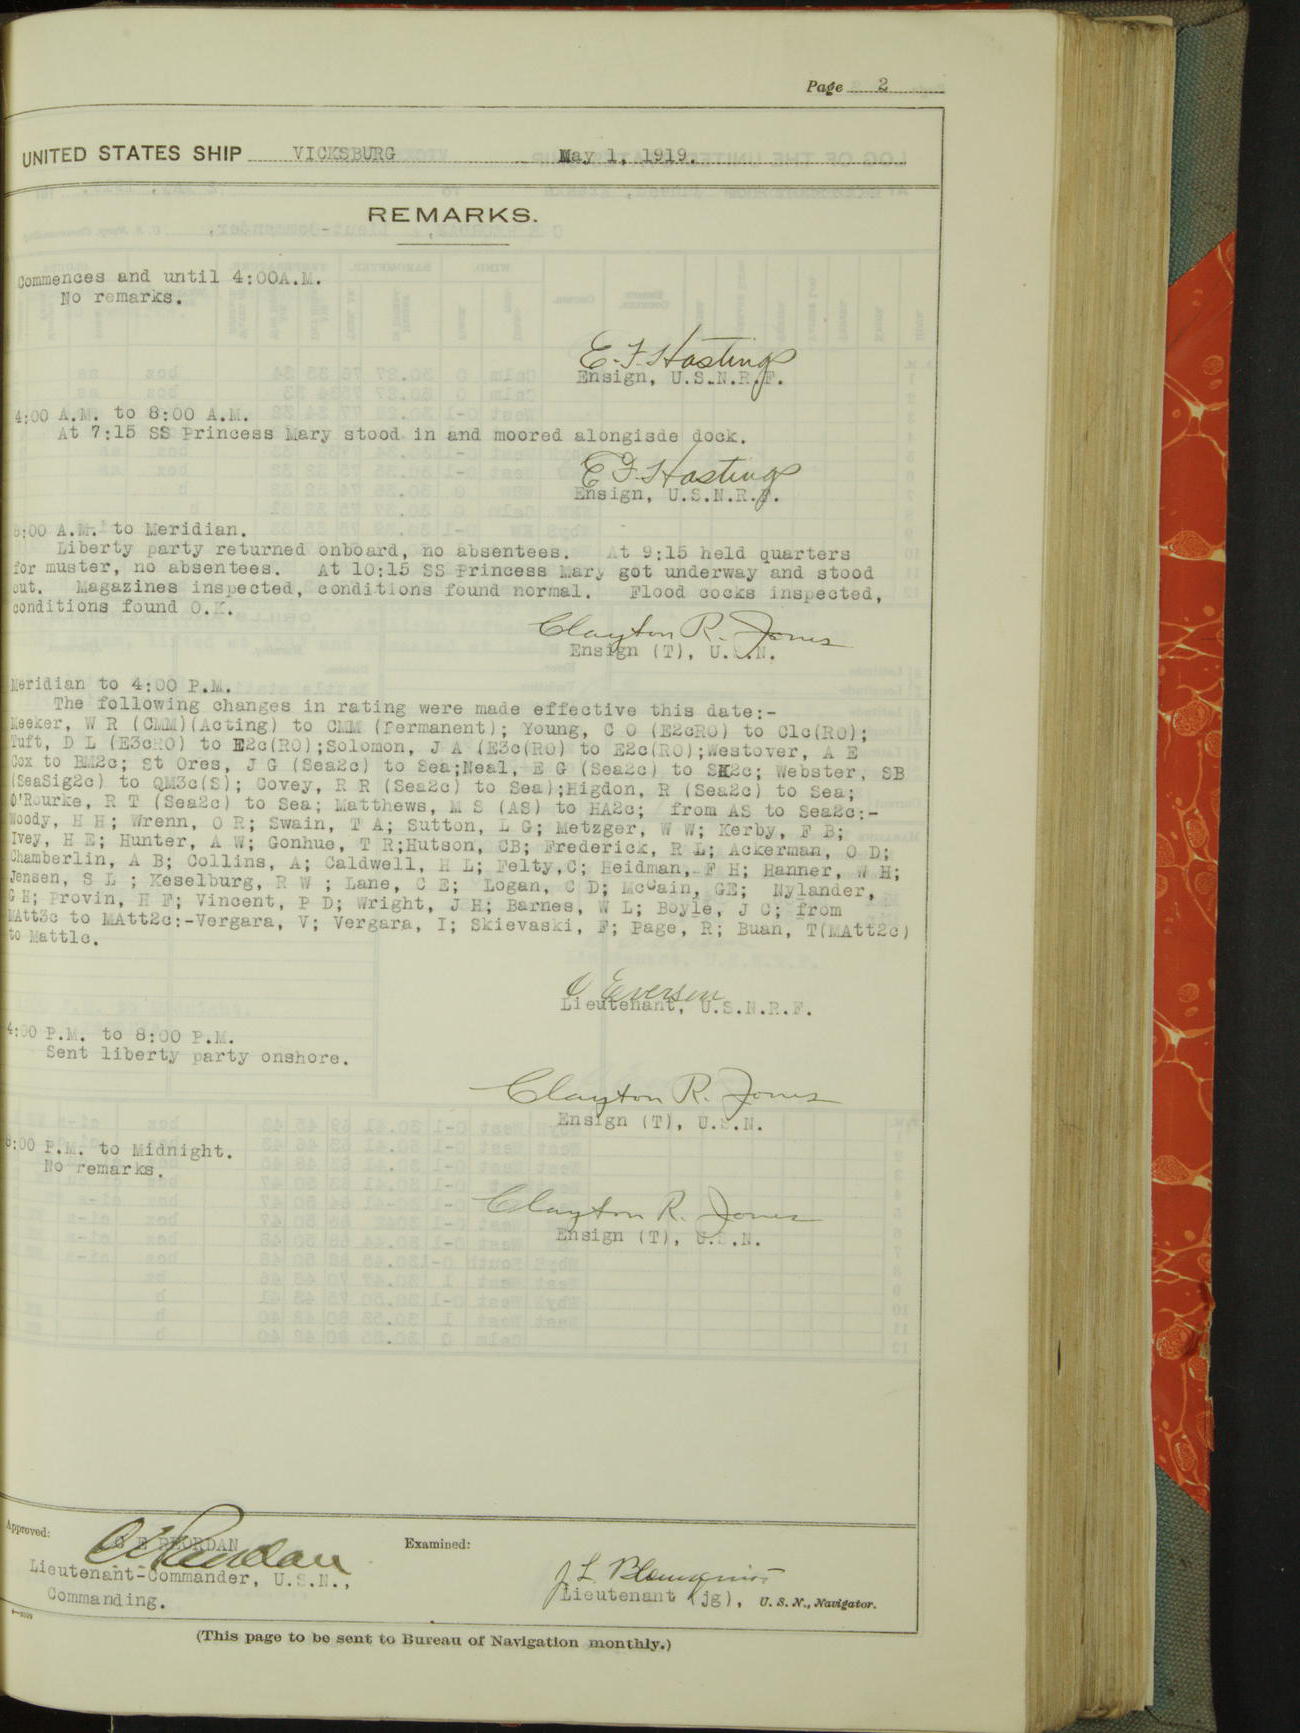 Page 2
UNITED STATES SHIP VICKSBURG May 1, 1919.
REMARKS.
Commences and until 4:00A.M.
No remarks.
E. F. Hastings
Ensign, U.S.N.R.F.
4:00 A.M. to 8:00 A.M.
At 7:15 SS Princess Mary stood in and moored alongisde dock.
E F Hastings
Ensign, U.S.N.R.F.
8:00 A.M. to Meridian.
Liberty party returned onboard, no absentees. At 9:15 held quarters
for muster, no absentees. At 10:15 SS Princess Mary got underway and stood
out. Magazines inspected, conditions found normal. Flood cocks inspected,
conditions found O.K.
Clayton R. Jones
Ensign (T), U.S.N.
Meridian to 4:00 P.M.
The following changes in rating were made effective this date:-
Meeker, W R (CMM)(Acting) to CMM (Permanent); Young, C O (E2cRO) to C1c(RO);
Tuft, D L (E3cRO) to E2c(RO);Solomon, J A (E3c(RO) to E2c(RO);Westover, A E
Cox to BM2c; St Ores, J G (Sea2c) to Sea;Neal, E G (Sea2c) to SK2c; Webster, SB
(SeaSig2c) to QM3c(S); Covey, R R (Sea2c) to Sea);Higdon, R (Sea2c) to Sea;
O'Rourke, R T (Sea2c) to Sea; Matthews, M S (AS) to HA2c; from AS to Sea2c:-
Woody, H H; Wrenn, O R; Swain, T A; Sutton, L G; Metzger, W W; Kerby, F B;
Ivey, H E; Hunter, A W; Gonhue, T R;Hutson, CB; Frederick, R L; Ackerman, O D;
Chamberlin, A B; Collins, A; Caldwell, H L; Felty,C; Heidman, F H; Hanner, W H;
Jensen, S L ; Keselburg, R W ; Lane, C E; Logan, C D; McCain, GE; Nylander,
G H; Provin, H F; Vincent, P D; Wright, J H; Barnes, W L; Boyle, J C; from
MAtt3c to MAtt2c:-Vergara, V; Vergara, I; Skievaski, F; Page, R; Buan, T(MAtt2c)
to Matt1c.
O Everson
Lieutenant, U.S.N.R.F.
4:00 P.M. to 8:00 P.M.
Sent liberty party onshore.
Clayton R. Jones
Ensign (T), U.S.N.
8:00 P.M. to Midnight.
No remarks.
Clayton R. Jones
Ensign (T), U.S.N.
Approved:
C E REORDAN
Lieutenant-Commander, U.S.N.,
Commanding.
Examined:
J L
Lieutenant (jg), U. S. N., Navigator.
(This page to be sent to Bureau of Navigation monthly.)